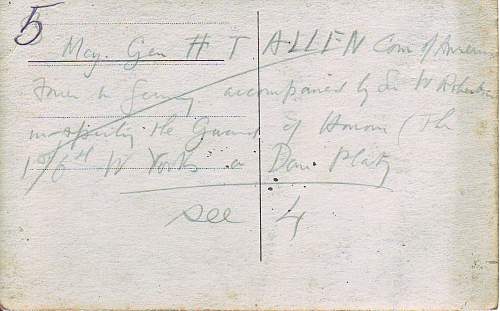 5
Maj. Gen H T ALLEN Com of American
Forces in Germany accompanied by Sir W Robertson
inspecting the Guard of Honour (The
1/6th W Yorks a Dom Platz
see 4